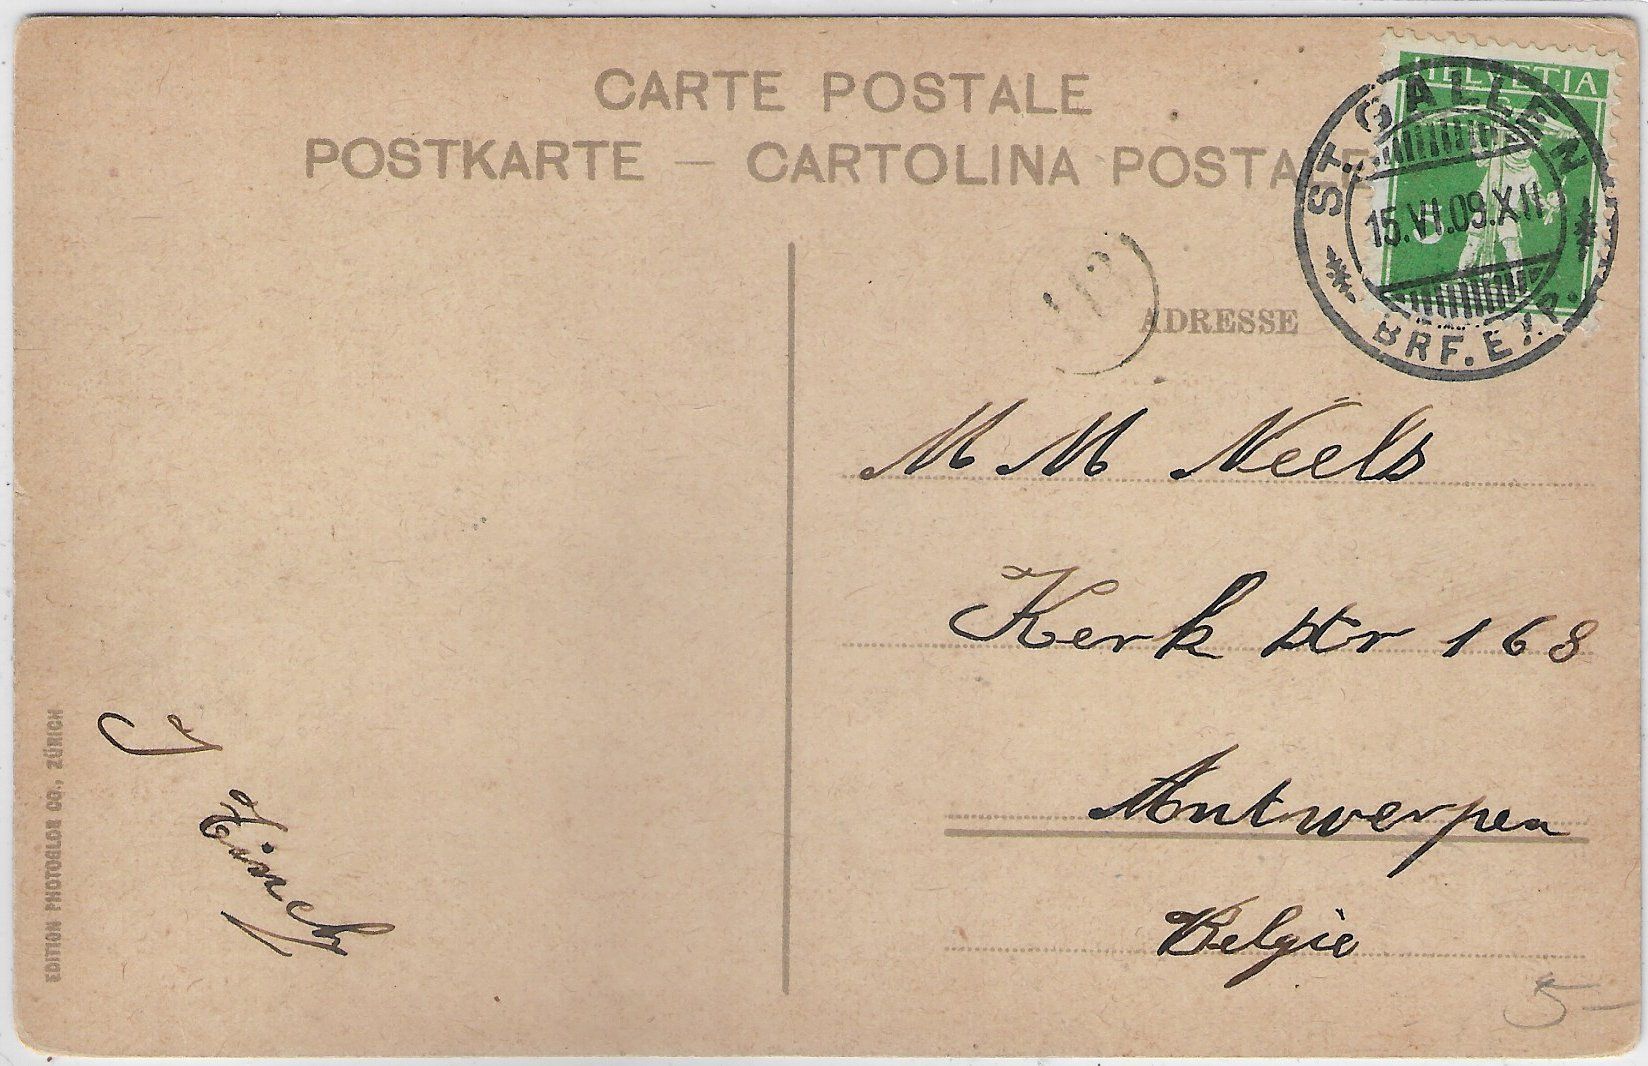 CARTE POSTALE
POSTKARTE — CARTOLINA POSTALE
HELVETIA
5
ST. GALLEN
15.VI.09.XII
BRF. EXP.
ADRESSE
M M Neels
Kerk str 168
Antwerpen
Belgie
5-
J
EDITION PHOTOGLOB CO., ZÜRICH